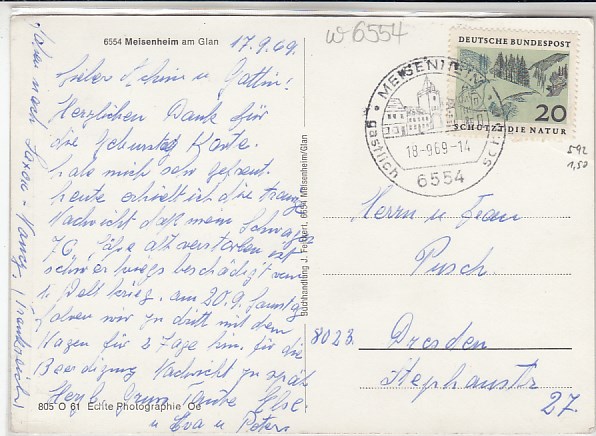 6554 Meisenheim am Glan
17.9.69.
Lieber Achim u. Gattin!
Herzlichen Dank für
die Geburtstag Karte.
habe mich sehr gefreut.
heute erhielt ich die traurige
Nachricht daß mein Schwager
76 Jahre alt verstorben ist
schwer kriegs beschädigt vom
1. Welt krieg. am 20.9. Samstag
fahren wir zu dritt mit dem
Wagen für 2 Tage hin. für die
Beerdigung Nachricht zu spät
Herzl. Gruß Tante Else.
u Eva u Peter
nach Saxon - Nancy. (Frankreich)
805 O 61 Echte Photographie Oe
Buchhandlung J. Feickert, 6554 Meisenheim/Glan
w 6554
DEUTSCHE BUNDESPOST
20
SCHÜTZT DIE NATUR
MEISENHEIM
18-9.69-14
6554
gastlich
592
1,50
Herrn u Frau
Pusch.
8023. Dresden
Stephanstr
27.